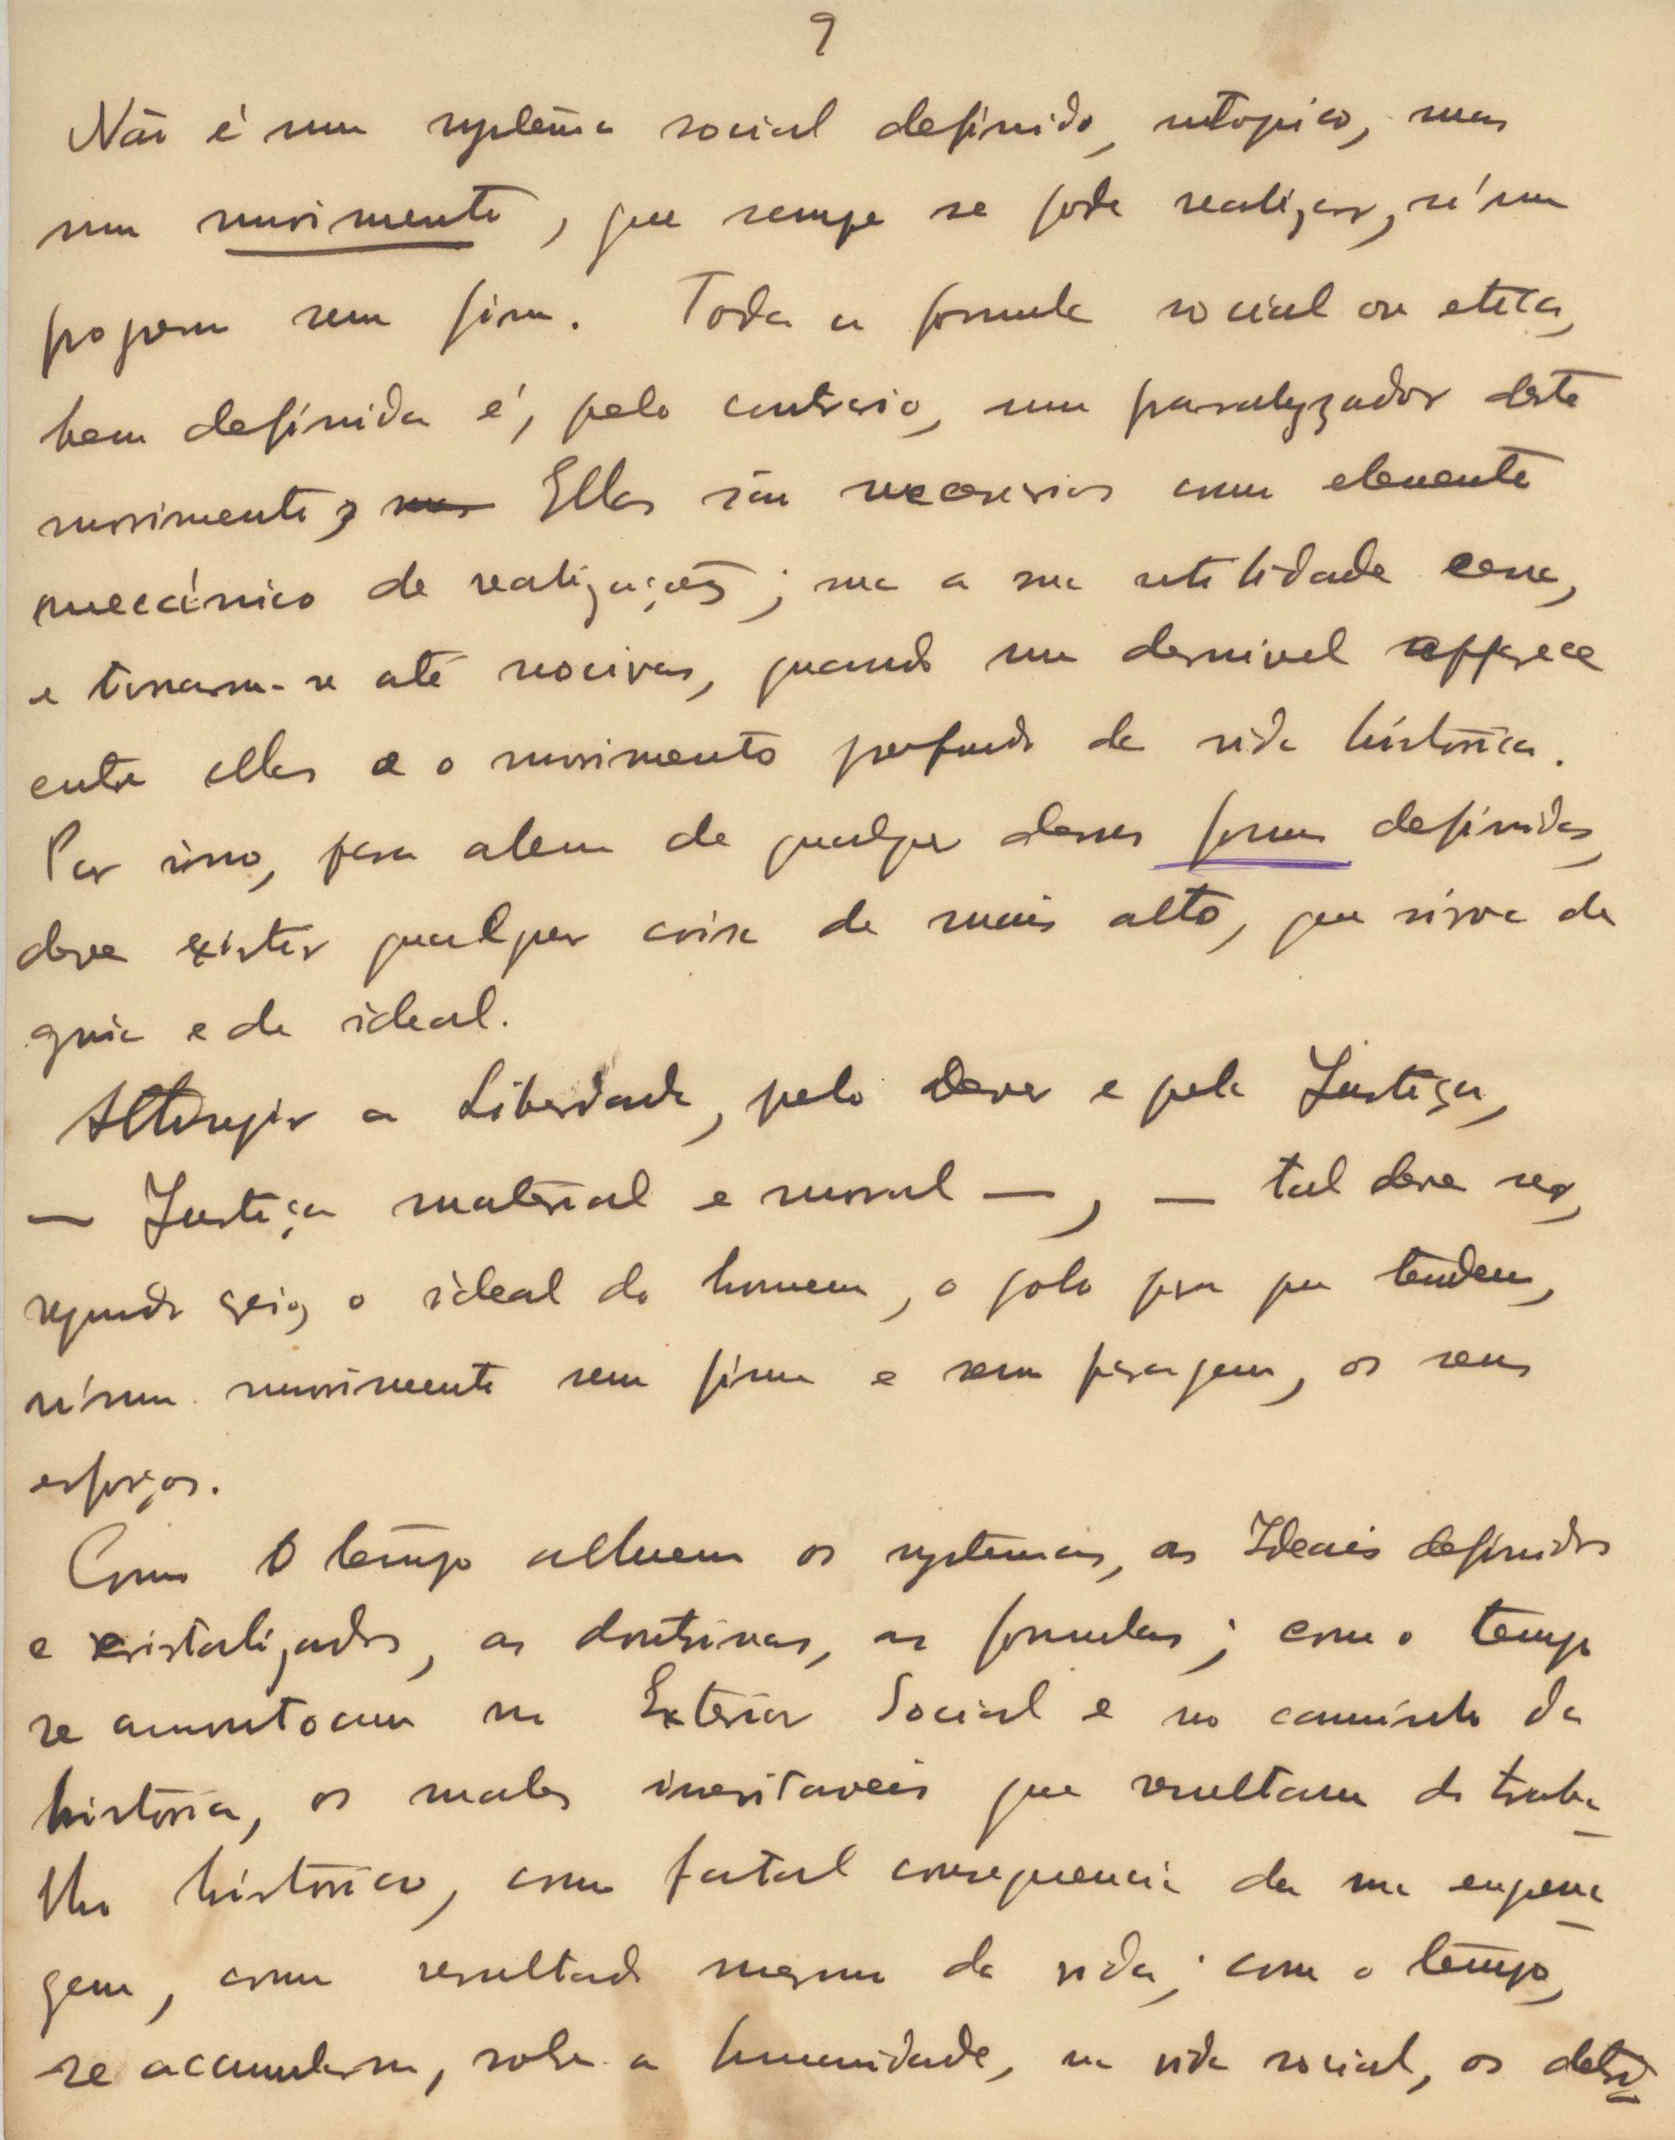 9
Não é um systêma social definido, utopico, mas
um movimento, que sempre se pode realizar, n'um
progresso sem fim. Toda a formula social ou etica,
bem definida é, pelo contrario, um paralyzador deste
movimento, mas Ellas são necessarias como elemento
meccânico de realizações; mas a sua utilidade cessa,
e tornam-se até nocivas, quando um desnivel apparece
entre ellas e o movimento profundo da vida histórica.
Por isso, para alem de qualquer dessas formas definidas,
deve existir qualquer coisa de mais alto, que sirva de
guia e de ideal.
Attingir a Liberdade, pelo Dever e pela Justiça,
— Justiça material e moral —, — tal deve ser,
segundo creio, o ideal do homem, o polo para que tendem,
n'um movimento sem fim e sem paragem, os seus
esforços.
Como o tempo alluem os systemas, as Ideais definidos
e cristalizados, as doutrinas, as formulas; como o tempo
se amontoam no Exterior Social e no caminho da
história, os males inevitaveis que resultam do traba-
lho histórico, como fatal consequencia da sua engrena-
gem, como resultado mesmo da vida; com o tempo,
se accumularam, sobre a humanidade, na vida social, os detri-